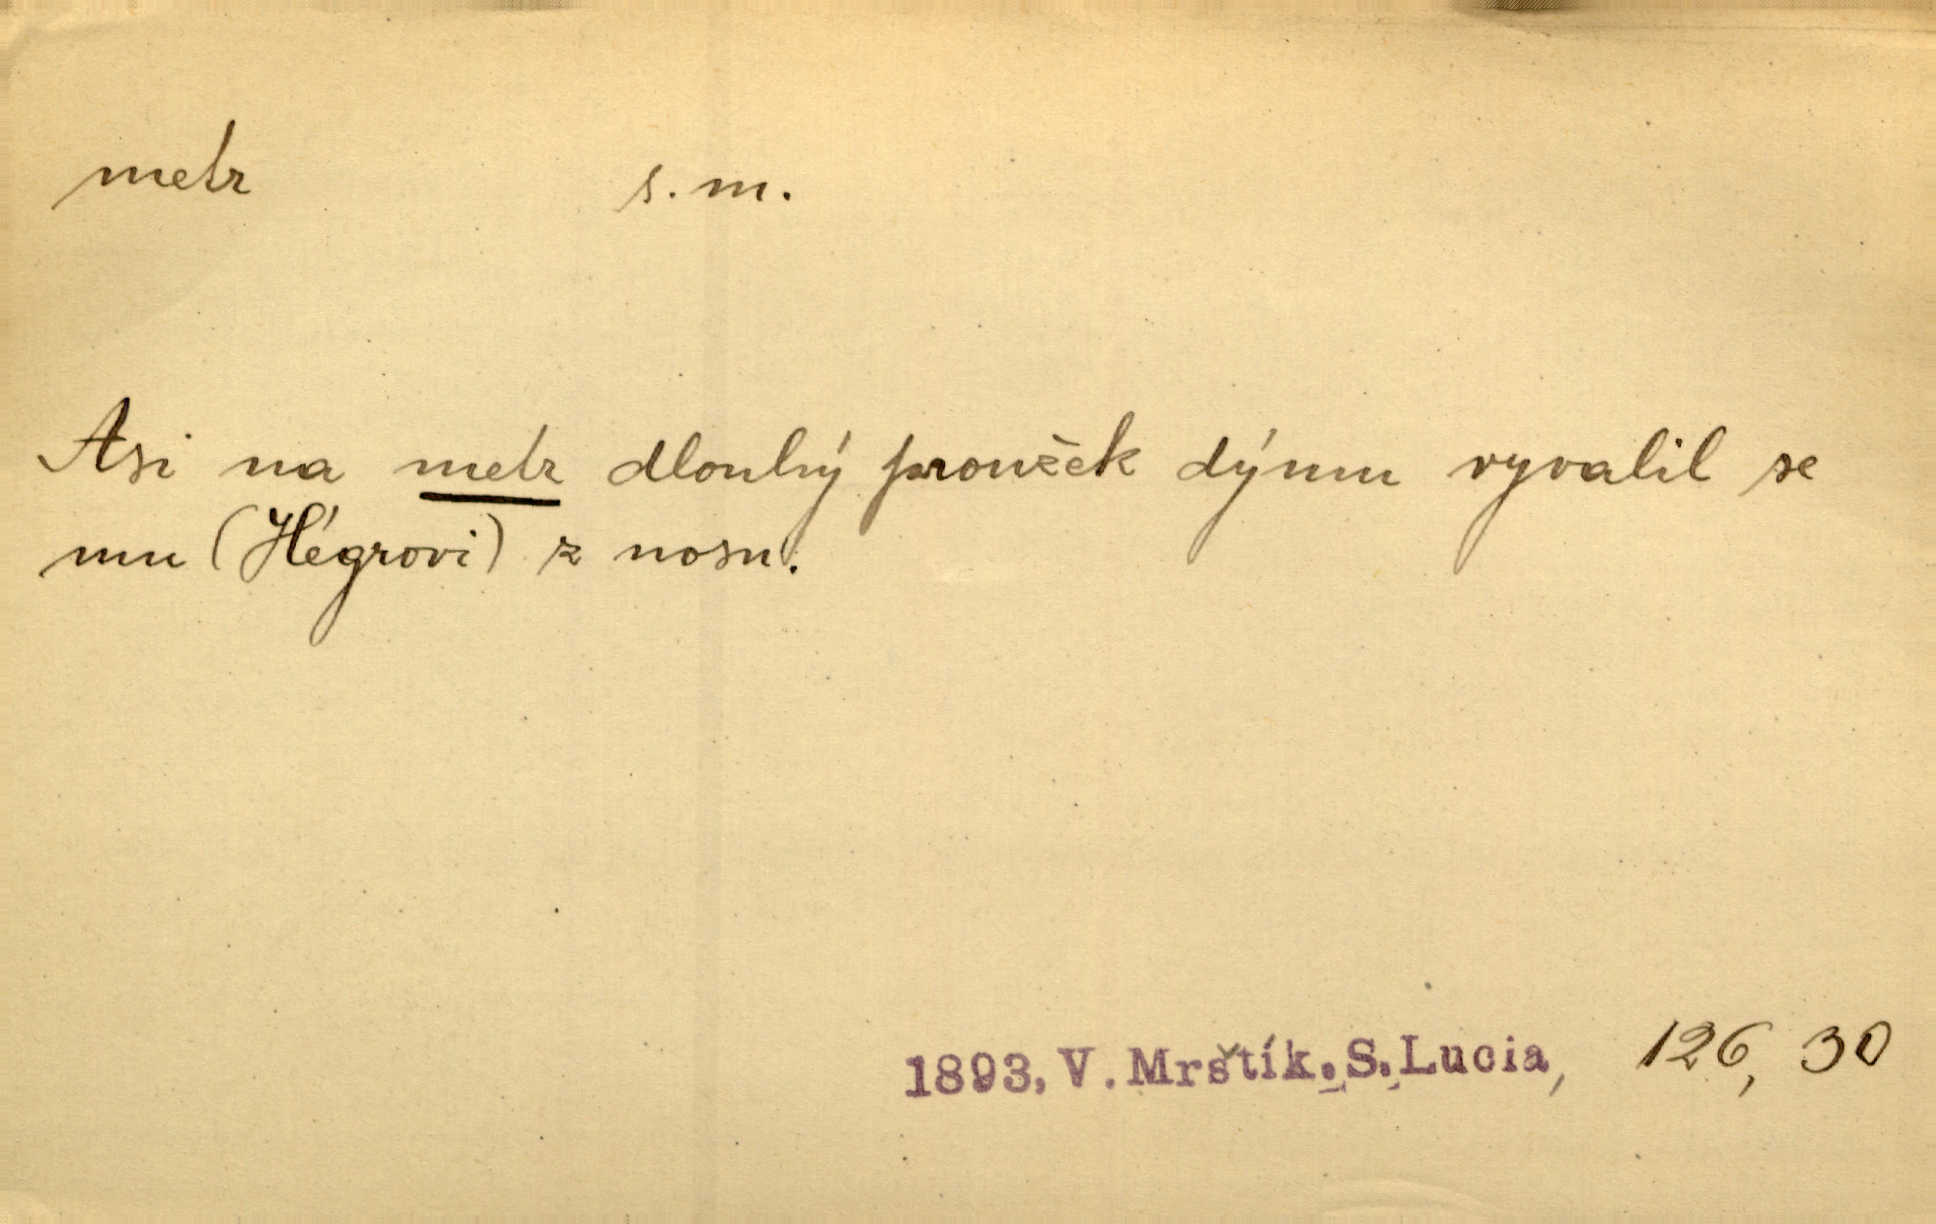 metr s. m.
Asi na metr dlouhý proužek dýmu vyvalil se
mu (Hégrovi) z nosu.
1893, V. Mrštík. S. Lucia, 126, 30